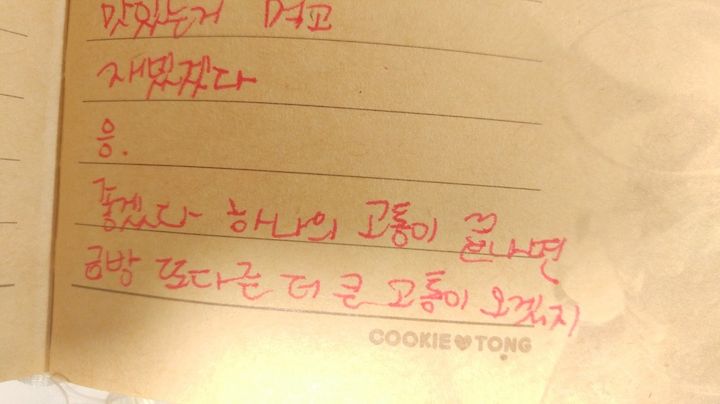 맛있는거 먹고
재밌겠다
응.
좋겠다 하나의 고통이 끝나면
금방 또다른 더 큰 고통이 오겠지
COOKIE TONG